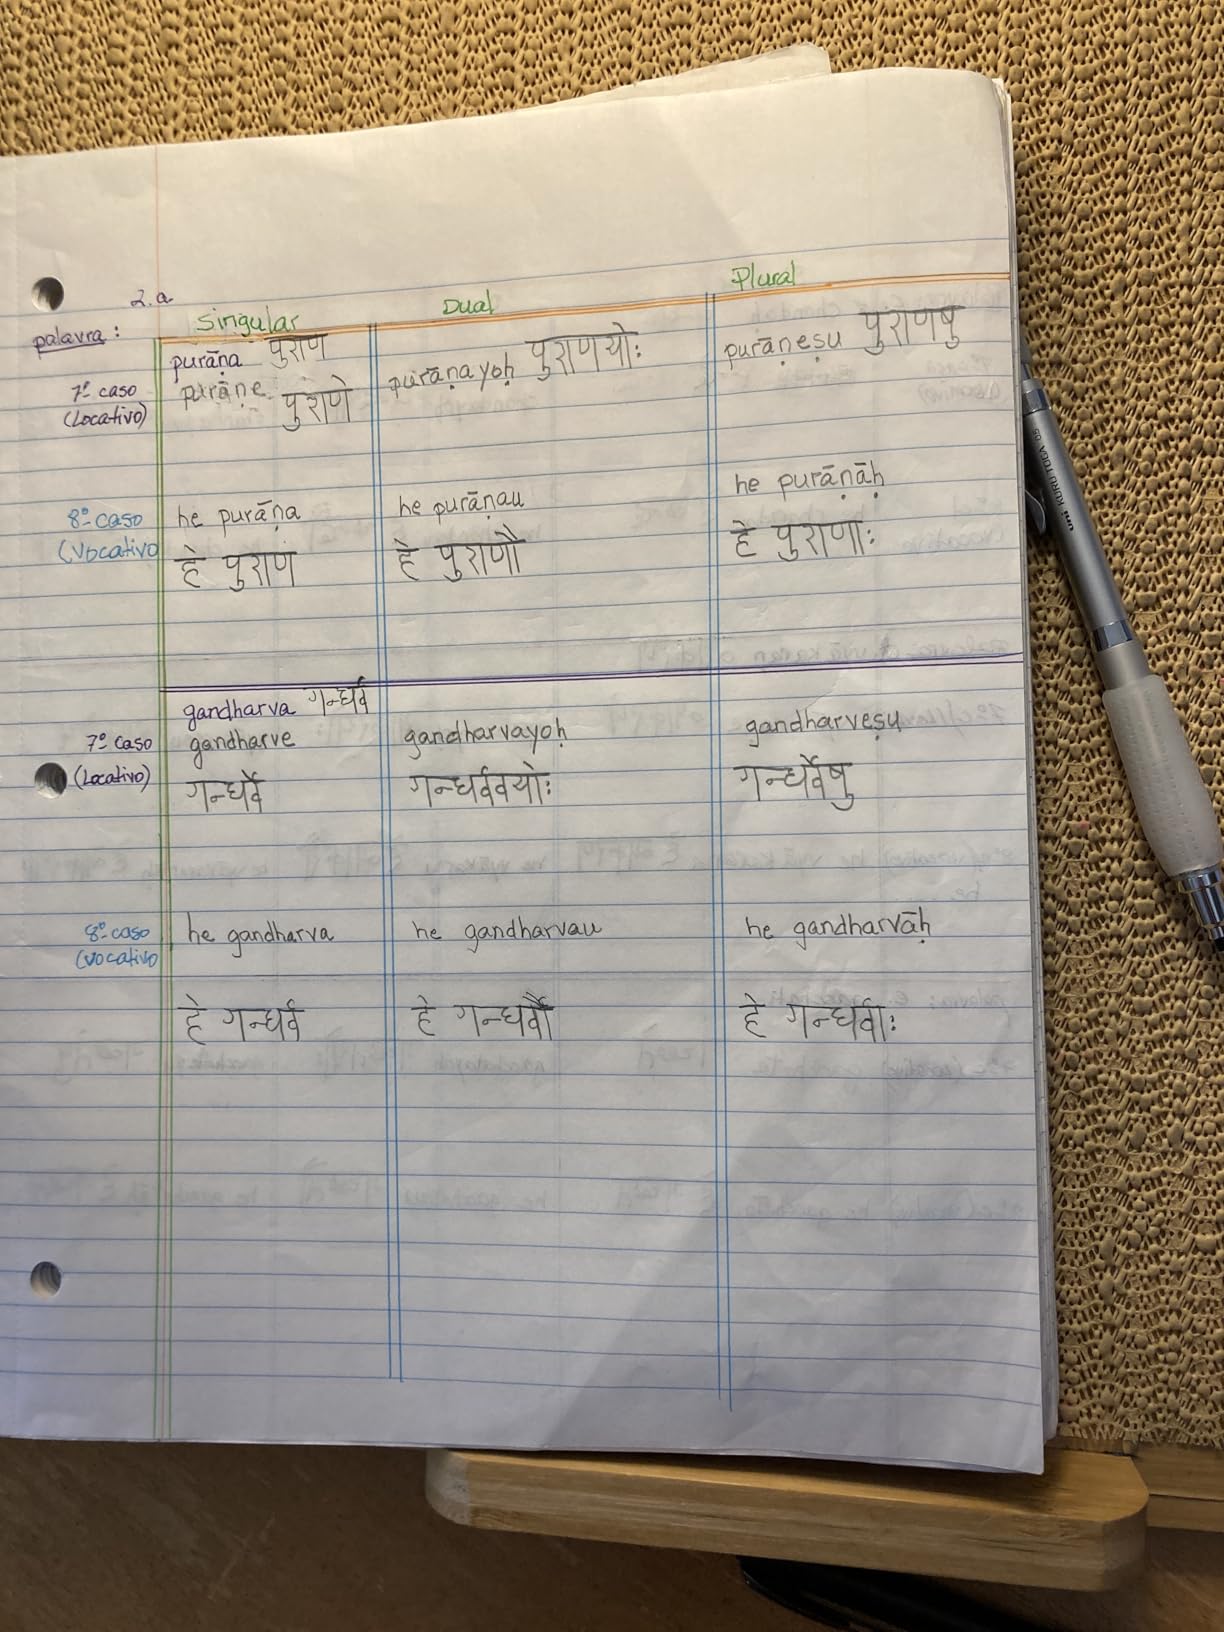 2.a
Singular Dual Plural
palavra: purāṇa पुराण
7º caso (Locativo) purāṇe पुराणे purāṇayoḥ पुराणयोः purāṇeṣu पुराणषु
8º caso (Vocativo he purāṇa he purāṇau he purāṇāḥ
हे पुराण हे पुराणौ हे पुराणाः
gandharva गन्धर्व
7º caso (Locativo) gandharve gandharvayoḥ gandharveṣu
गन्धर्वे गन्धर्ववयोः गन्धर्वेषु
8º caso (Vocativo he gandharva he gandharvau he gandharvāḥ
हे गन्धर्व हे गन्धर्वौ हे गन्धर्वाः
uni KURU TOGA 05